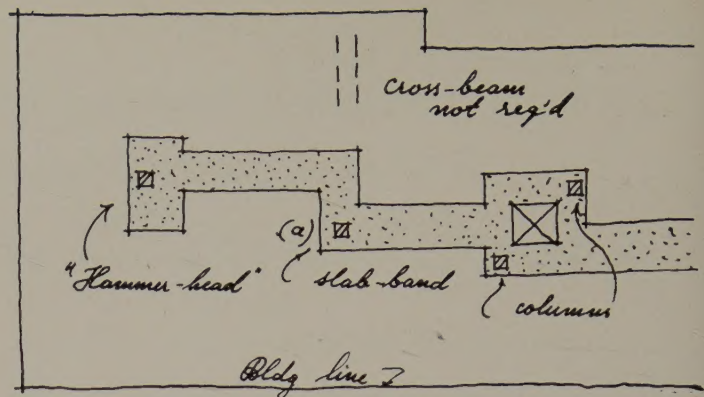 cross-beam
not req'd
(a)
"Hammer-head"
slab-band
columns
Bldg line